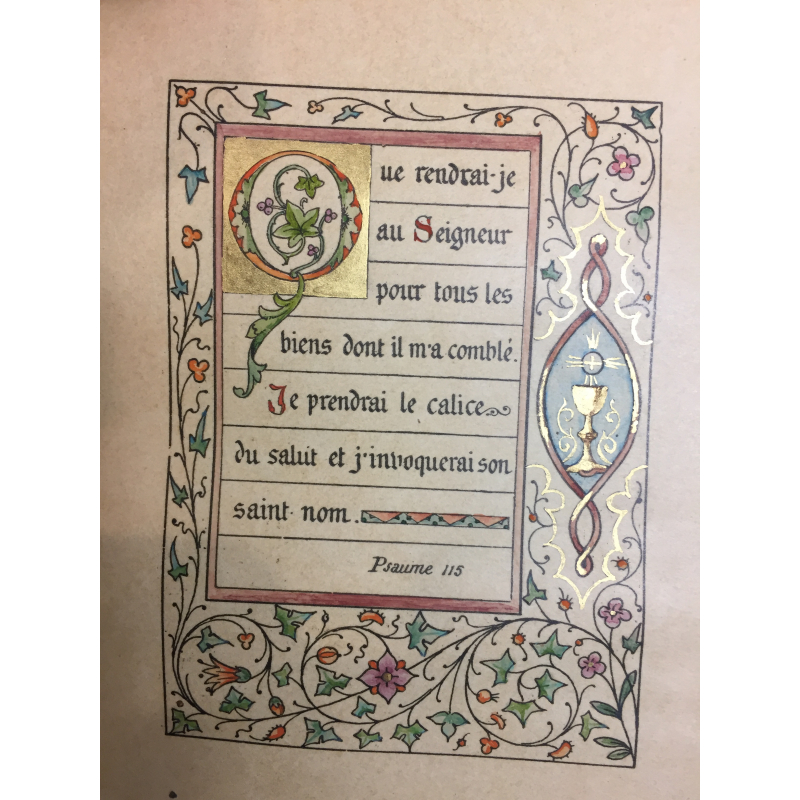 Que rendrai-je
au Seigneur
pour tous les
biens dont il m'a comblé.
Je prendrai le calice
du salut et j'invoquerai son
saint nom.
Psaume 115